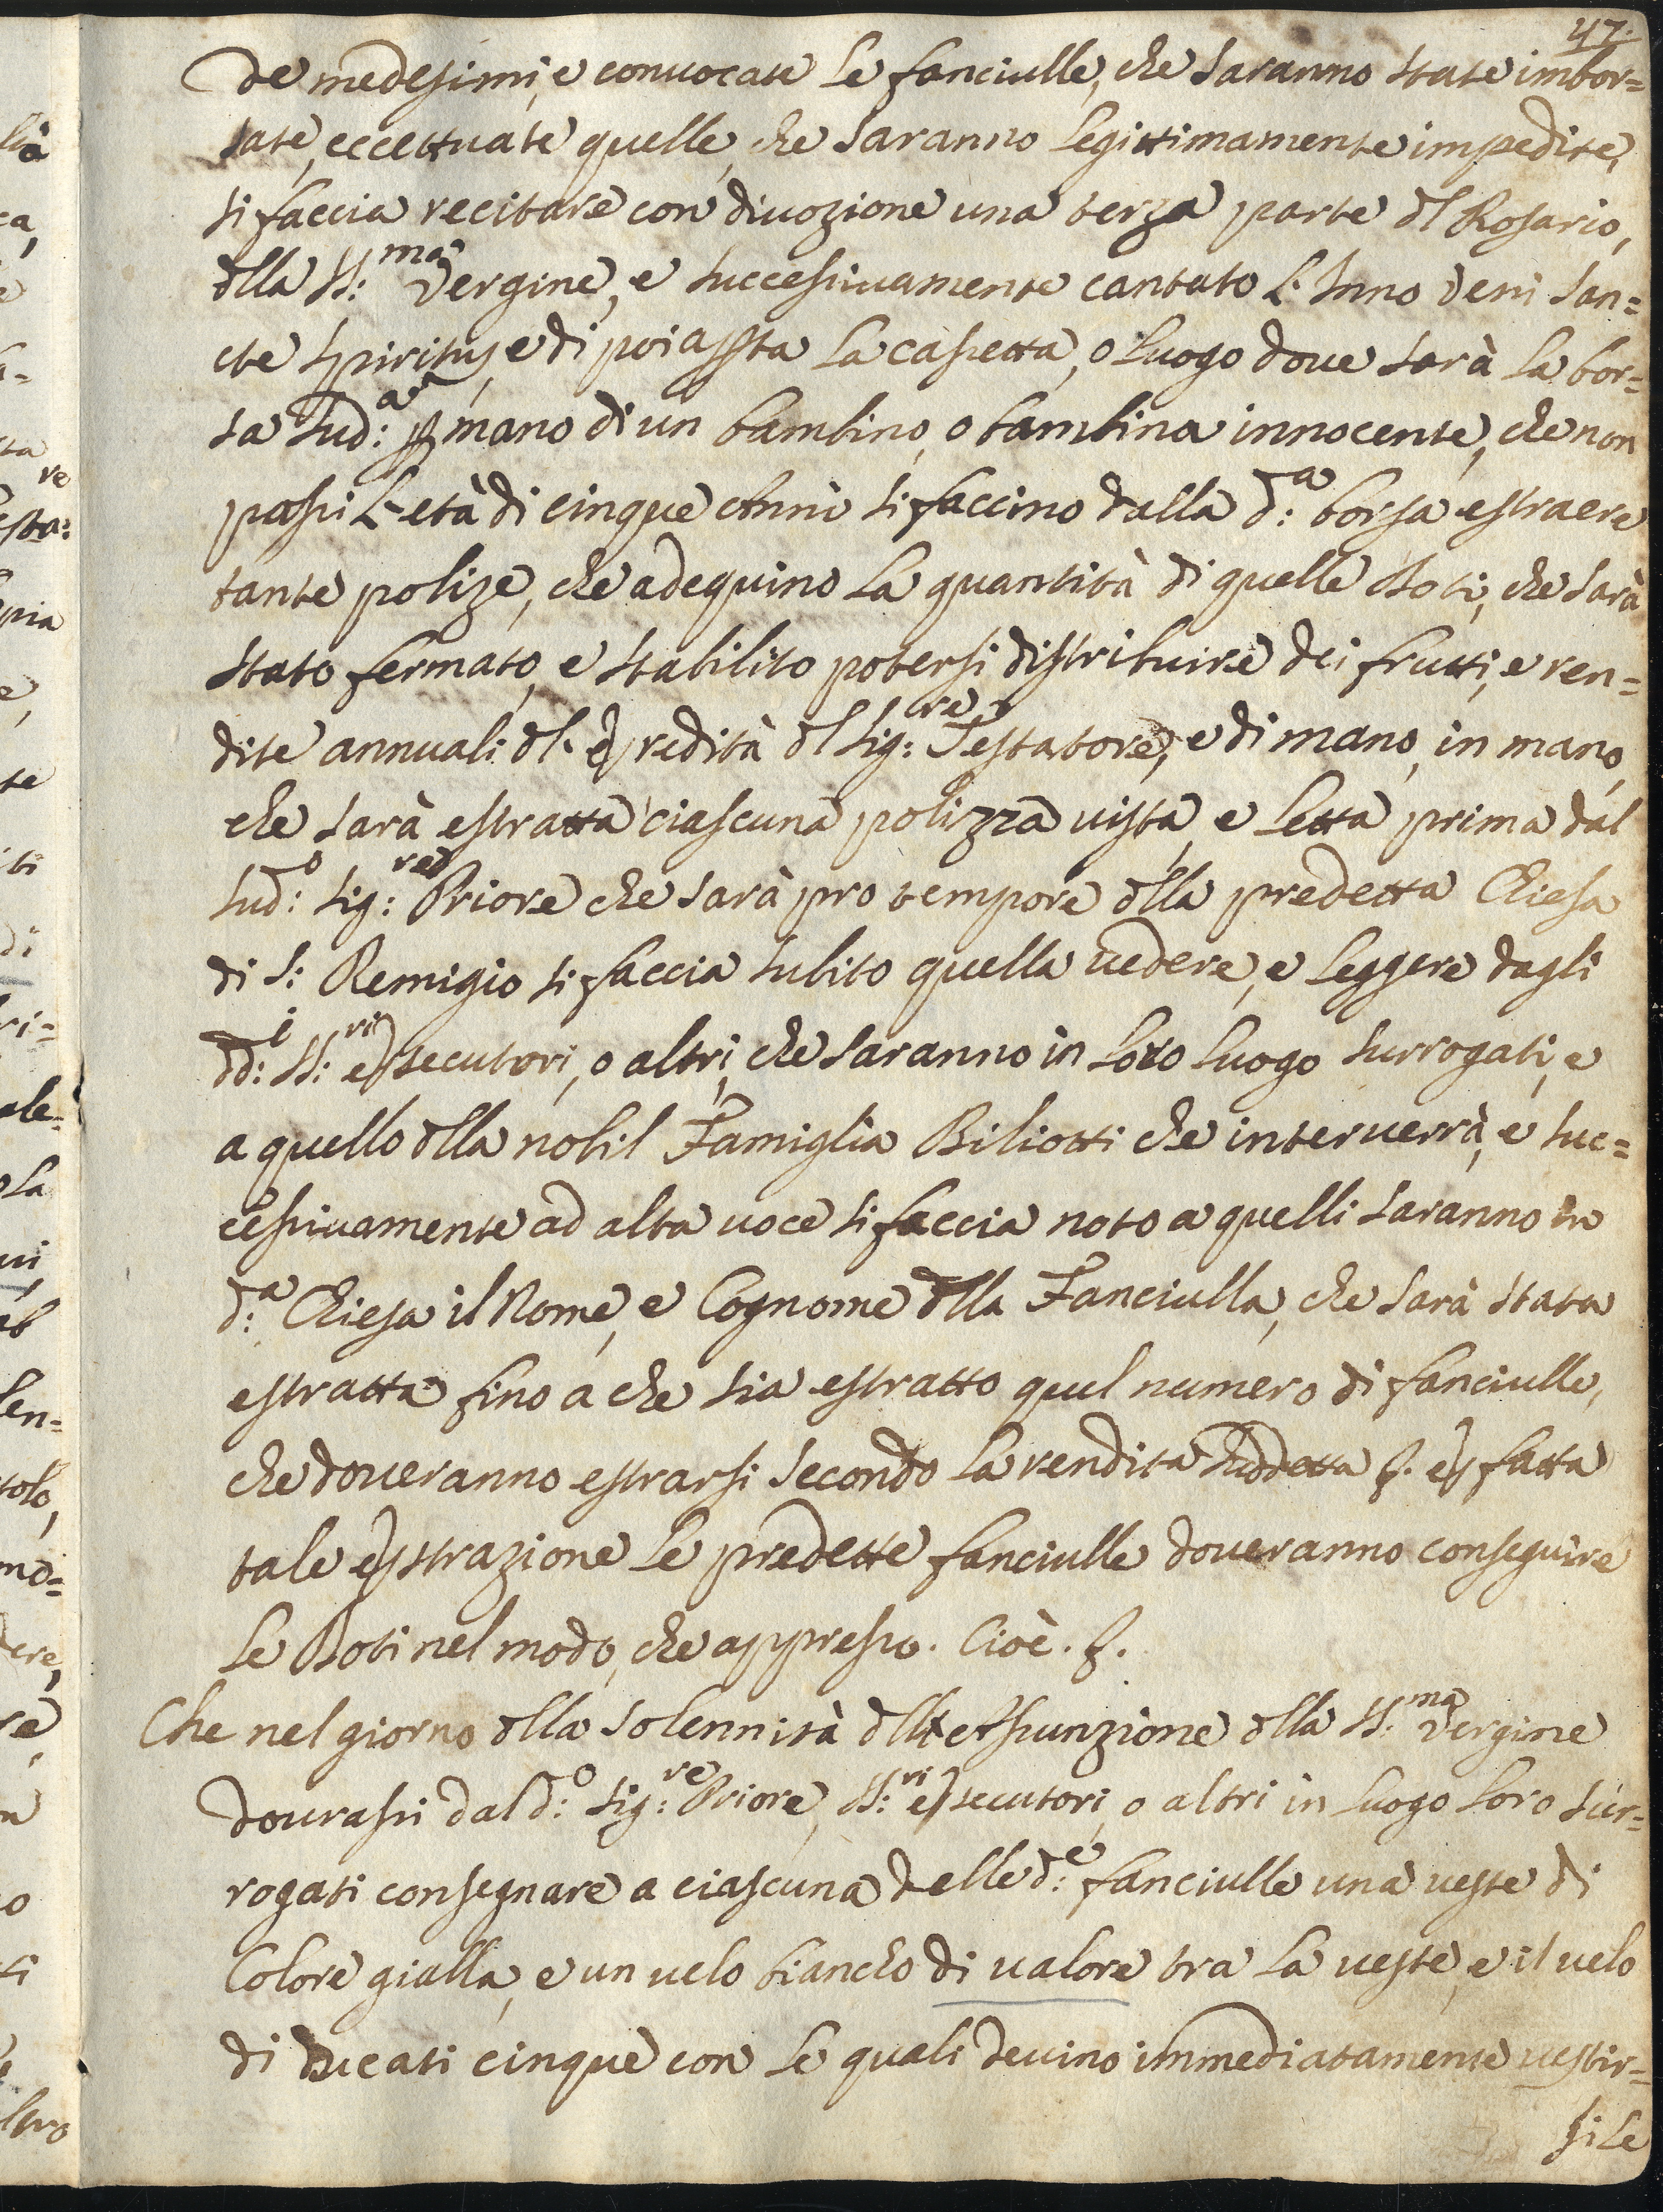 47.
De medesimi, e conuocate le fanciulle, che saranno state imbor=
sate, eccettuate quelle, che saranno legittimamente impedite,
si faccia recitare con diuozione una terza parte dl Rosario,
dlla SS:ma Vergine, e successiuamente cantato l'Inno Veni San=
cte Spiritus, e di poi aperta la cassetta, o luogo doue sarà la bor=
sa sud:a p mano di un bambino, o bambina innocente, che non
passi l'età di cinque Anni si faccino dalla d:a borsa estraere
tante polize, che adequino la quantità di quelle Doti, che sarà
stato fermato, e stabilito potersi distribuire dei frutti, e ren=
dite annuali dl' Eredità dl Sig:re Testatore, e di mano, in mano,
che sarà estratta ciascuna polizza uista, e letta prima dal
sud:o Sig:re Priore che sarà pro tempore dlla predetta Chiesa
di S: Remigio si faccia subito quella uedere, e leggere dagli
dd:i SS:ri Esecutori, o altri, che saranno in loro luogo surrogati, e
a quello dlla nobil Famiglia Biliotti che interuerrà, e suc=
cessiuamente ad alta uoce si faccia noto a quelli saranno in
d:a Chiesa il Nome, e Cognome dlla Fanciulla, che sarà stata
estratta fino a che sia estratto quel numero di fanciulle,
che doueranno estrarsi secondo la rendita suddetta f. e fatta
tale Estrazione le predette fanciulle doueranno conseguire
le Doti nel modo, che appresso. Cioè. f.
Che nel giorno dlla solennità dll' Assunzione dlla SS:ma Vergine
dourassi dal d:o Sig:re Priore, SS:ri Esecutori, o altri in luogo loro sur=
rogati consegnare a ciascuna delle d:e fanciulle una ueste di
Colore gialla, e un uelo biancho di ualore tra la ueste, e il uelo
di Ducati cinque con le quali deuino immediatamente uestir=
si le